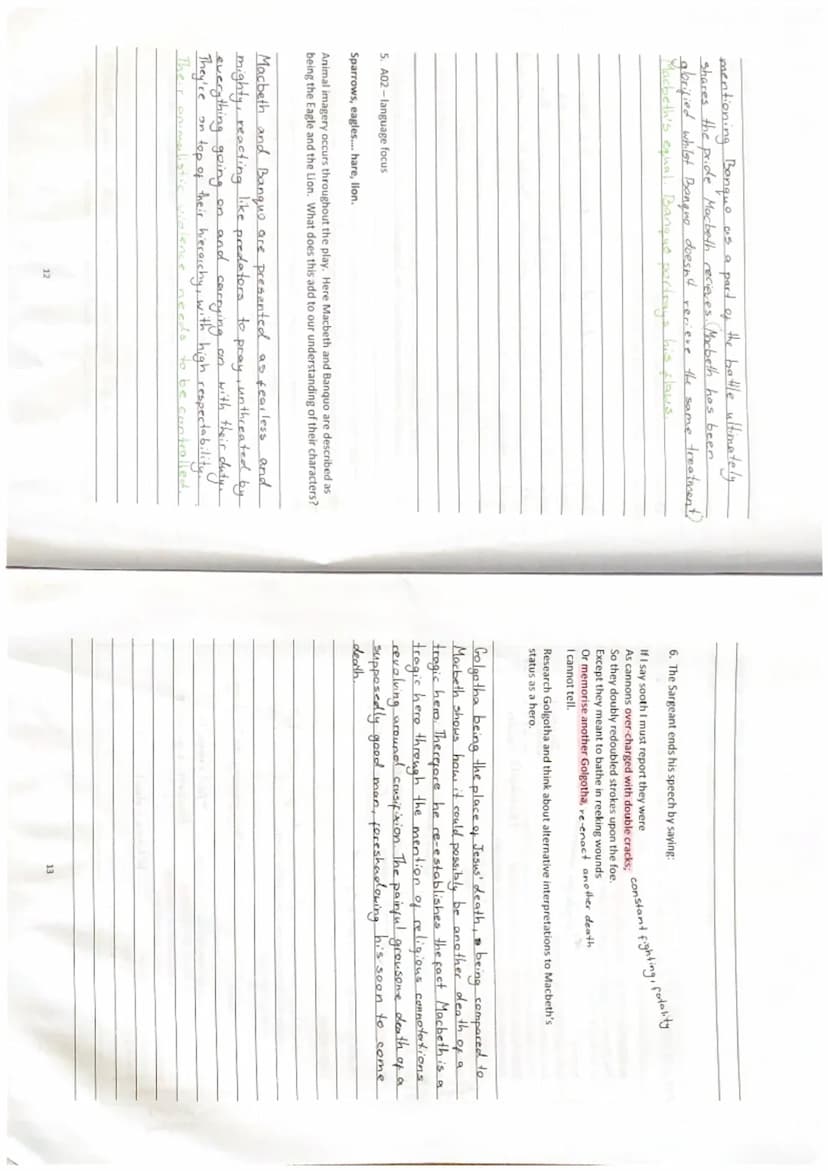 mentioning Banquo as a part of the battle ultimately
shares the pride Macbeth recieves. (Macbeth has been
glorified whilst Banquo doesn't recieve the same treatment)
Macbeth's equal. Banquo portrays his flaws.
5. A02 – language focus
Sparrows, eagles.... hare, lion.
Animal imagery occurs throughout the play. Here Macbeth and Banquo are described as
being the Eagle and the Lion. What does this add to our understanding of their characters?
Macbeth and Banquo are presented as fearless and
mighty, reacting like predators to pray, unthreated by
everything going on and carrying on with their duty.
They're on top of their hierachy, with high respectability.
Their animalistic violence needs to be controlled.
12
6. The Sargeant ends his speech by saying:
If I say sooth I must report they were
As cannons over-charged with double cracks; constant fighting, fatality
So they doubly redoubled strokes upon the foe.
Except they meant to bathe in reeking wounds
Or memorise another Golgotha, re-enact another death
I cannot tell.
Research Golgotha and think about alternative interpretations to Macbeth's
status as a hero.
Golgotha being the place of Jesus' death, being compared to
Macbeth shows how it could possibly be another death of a
tragic hero. Therefore he re-establishes the fact Macbeth is a
tragic hero through the mention of religious connotations
revolving around crusifixion. The painful grousome death of a
supposedly good man, foreshadowing his soon to come
death.
13